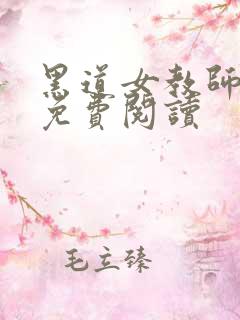 黑道女教師
免費閱讀
毛立臻